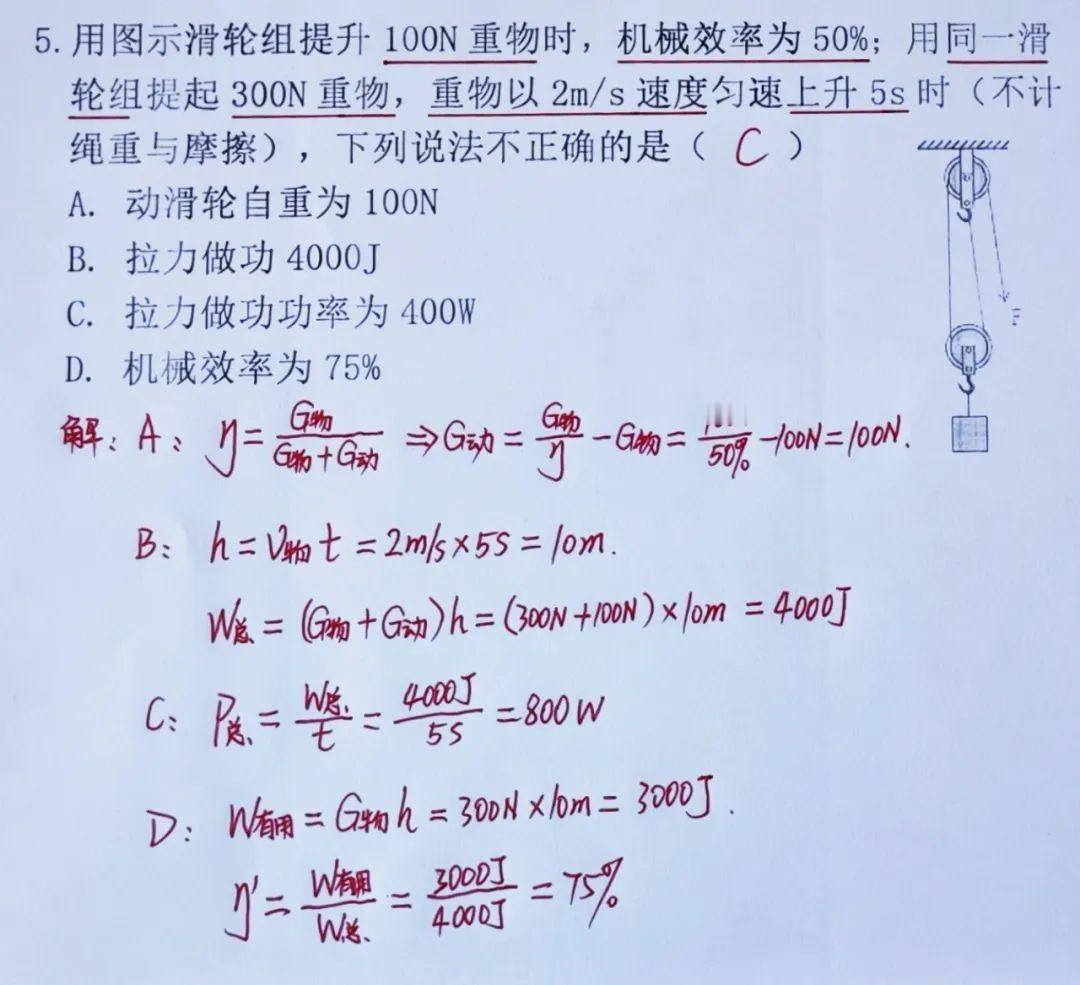 5. 用图示滑轮组提升 100N 重物时，机械效率为 50%；用同一滑
轮组提起 300N 重物，重物以 2m/s 速度匀速上升 5s 时（不计
绳重与摩擦），下列说法不正确的是（ C ）
A. 动滑轮自重为 100N
B. 拉力做功 4000J
C. 拉力做功功率为 400W
D. 机械效率为 75%
F
解：A：η=G物/(G物+G动) ⇒G动=G物/η-G物=/50%-100N=100N.
B：h=v物t=2m/s×5s=10m.
W总=(G物+G动)h=(300N+100N)×10m=4000J
C：P总=W总/t=4000J/5s=800W
D：W有用=G物h=300N×10m=3000J.
η'=W有用/W总=3000J/4000J=75%